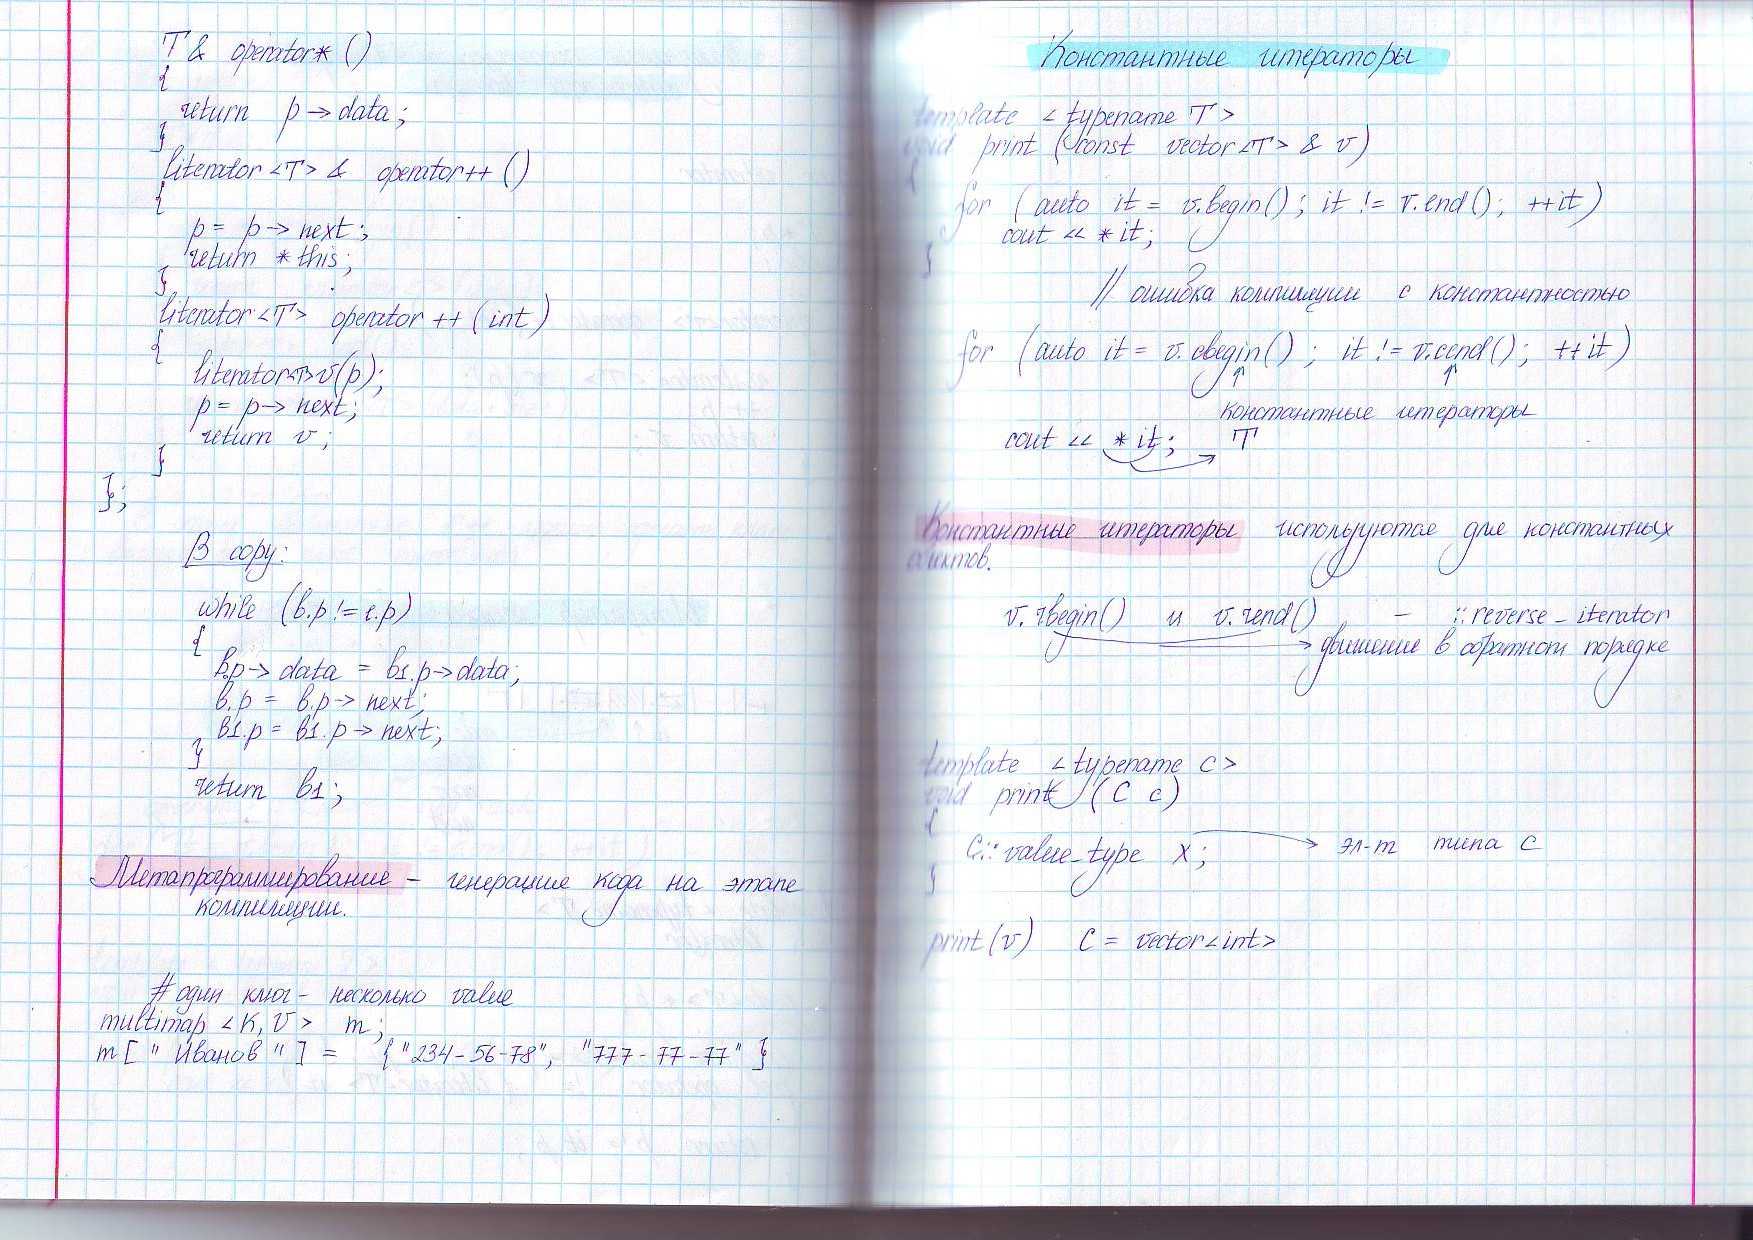 T& operator* ()
{
return p -> data;
}
literator <T> & operator++ ()
{
p = p -> next;
return *this;
}
literator <T> operator ++ (int)
{
literator<T> v(p);
p = p -> next;
return v;
}
};
В copy:
while (b.p != e.p)
{
b.p -> data = b1.p -> data;
b.p = b.p -> next;
b1.p = b1.p -> next;
}
return b1;
Метапрограммирование - генерация кода на этапе
компиляции.
# один ключ - несколько value
multimap <K, V> m;
m [ " Иванов " ] = { "234-56-78", "777-77-77" }
Константные итераторы
template <typename T>
void print (const vector<T> & v)
{
for (auto it = v.begin(); it != v.end(); ++it)
cout << *it;
}
// ошибка компиляции с константностью
for (auto it = v.cbegin(); it != v.cend(); ++it)
константные итераторы
cout << *it; T
Константные итераторы используются для константных
объектов.
v.rbegin() и v.rend() - ::reverse_iterator
движение в обратном порядке
template <typename C>
void print (C c)
{
C::value_type x; эл-т типа C
}
print(v) C = vector<int>